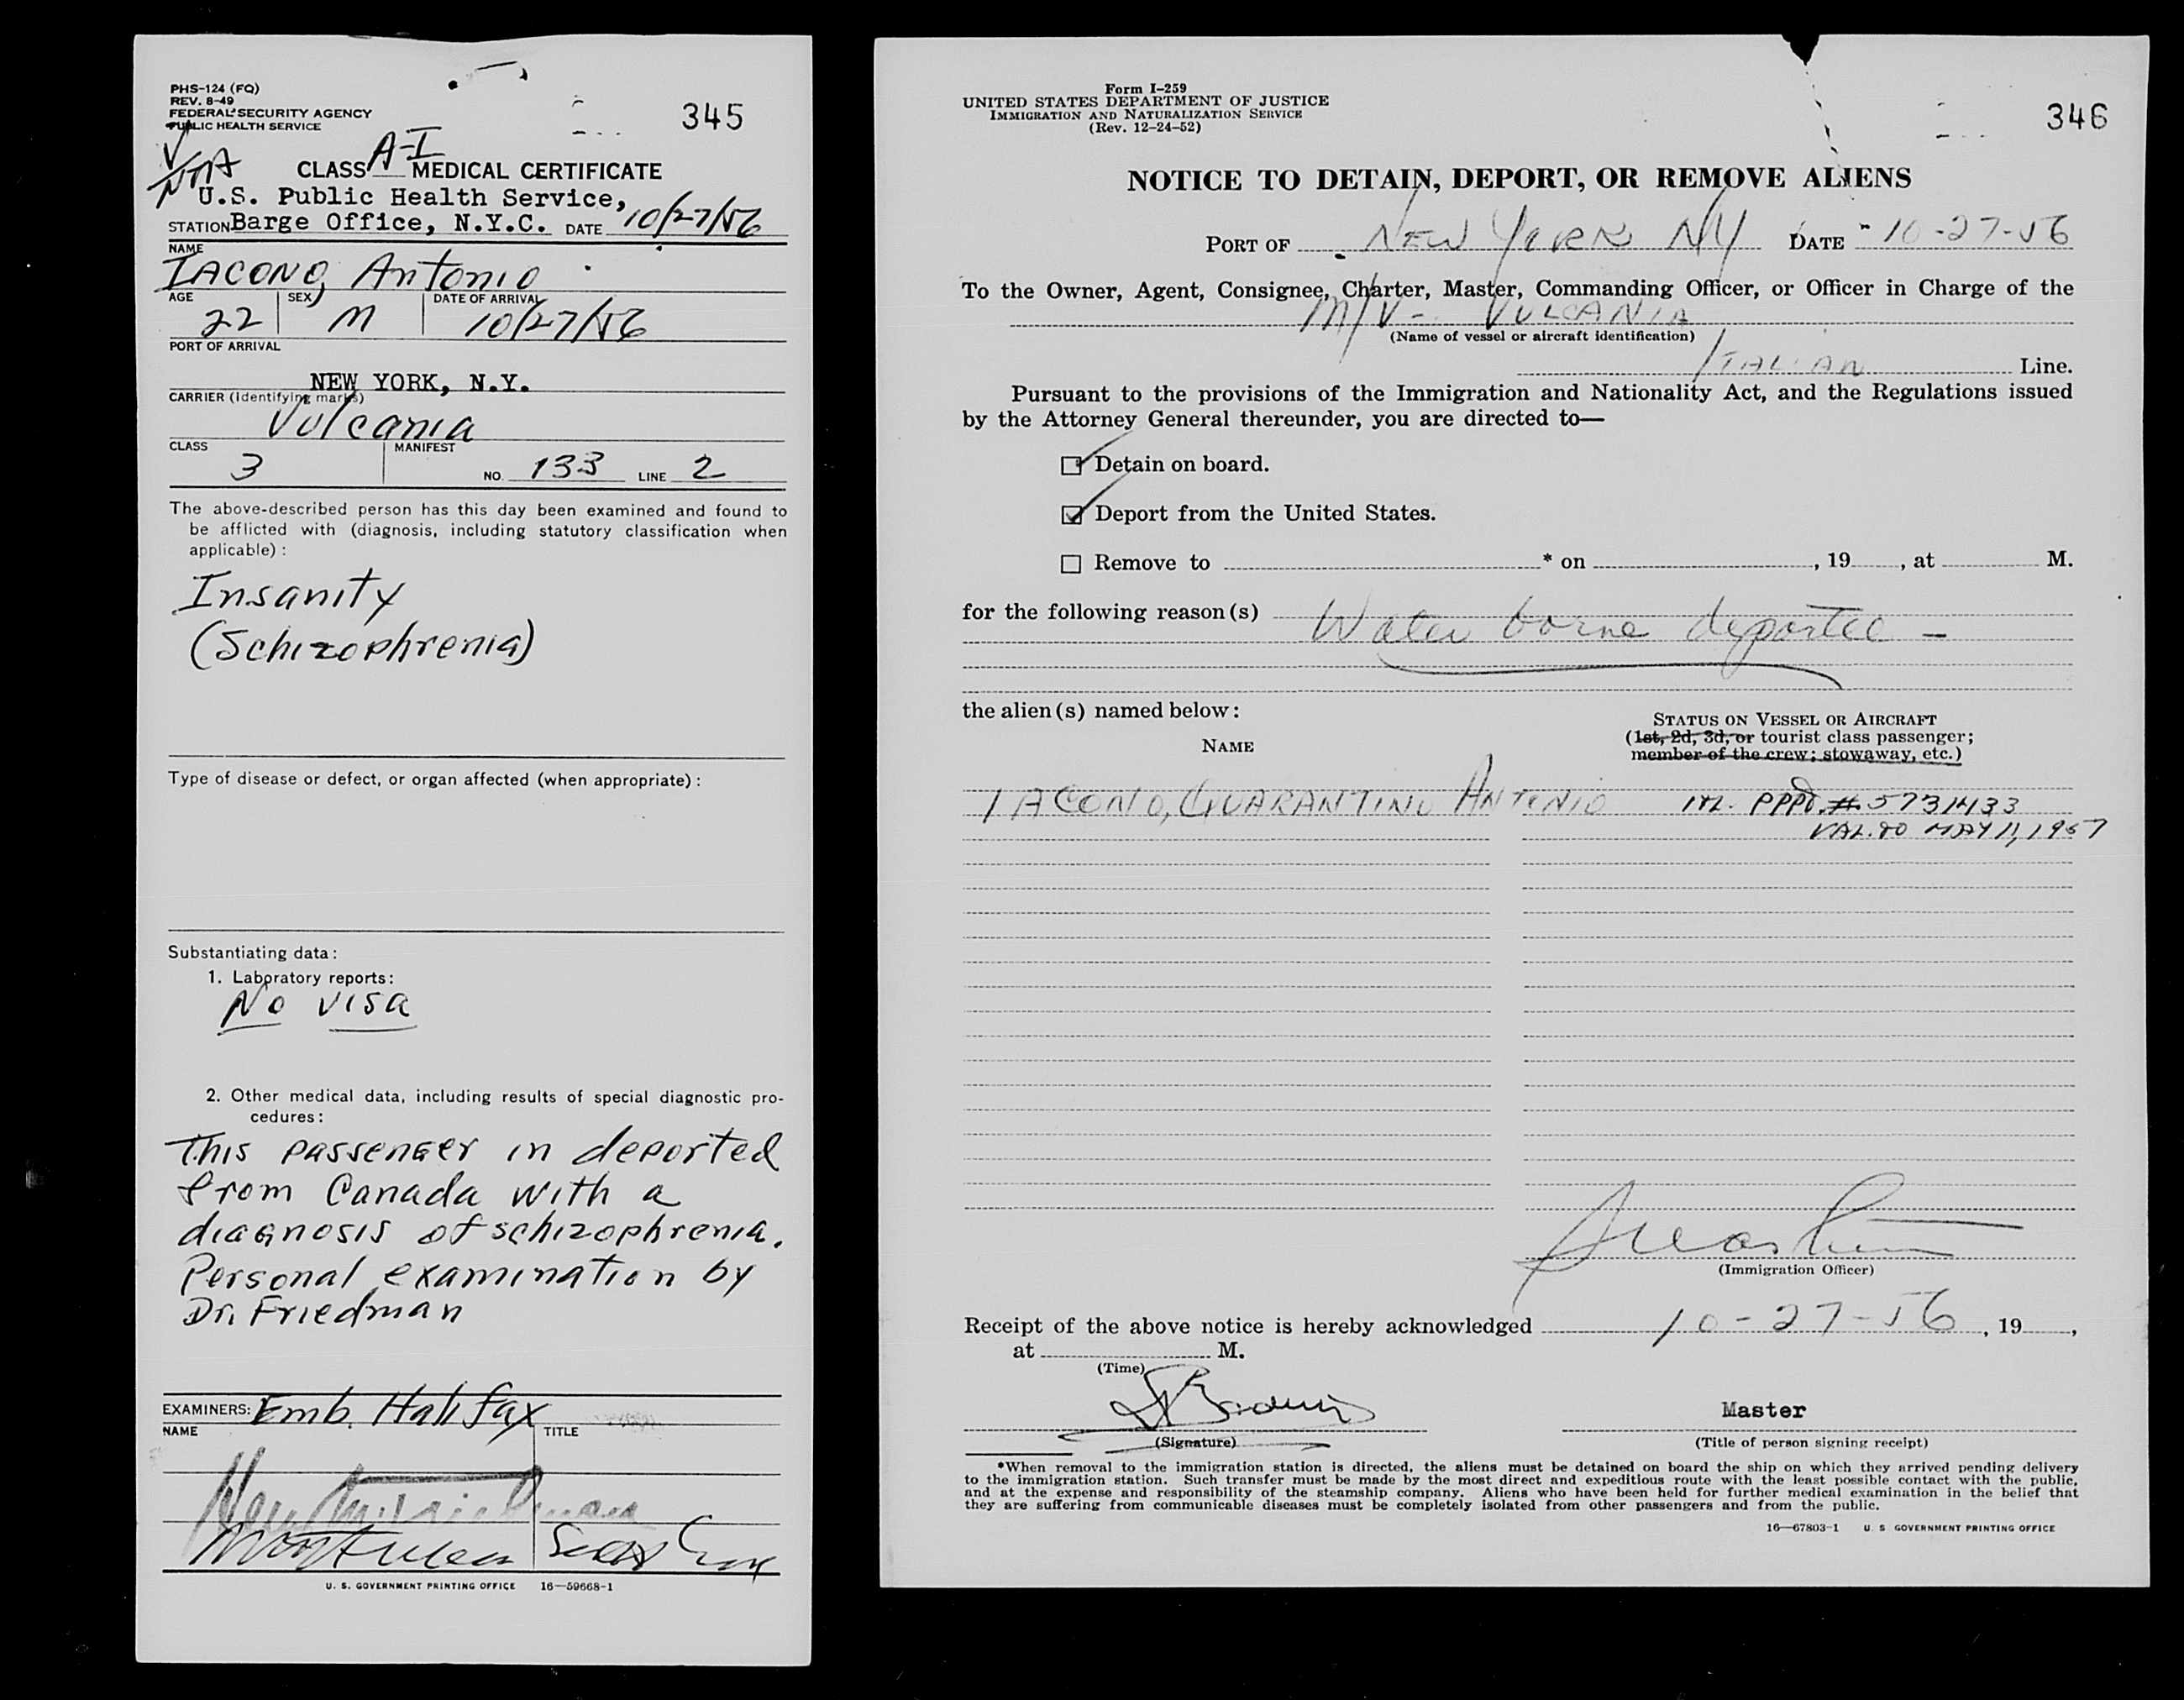 PHS-124 (FQ)
REV. 8-49
FEDERAL SECURITY AGENCY
PUBLIC HEALTH SERVICE
345
CLASS A-I MEDICAL CERTIFICATE
U.S. Public Health Service,
STATION Barge Office, N.Y.C. DATE 10/27/56
NAME
IACONO, Antonio
AGE SEX DATE OF ARRIVAL
22 M 10/27/56
PORT OF ARRIVAL
NEW YORK, N.Y.
CARRIER (Identifying marks)
Vulcania
CLASS MANIFEST
3 NO. 133 LINE 2
The above-described person has this day been examined and found to
be afflicted with (diagnosis, including statutory classification when
applicable):
Insanity
(Schizophrenia)
Type of disease or defect, or organ affected (when appropriate):
Substantiating data:
1. Laboratory reports:
No visa
2. Other medical data, including results of special diagnostic pro-
cedures:
This passenger in deported
from Canada with a
diagnosis of schizophrenia.
Personal examination by
Dr. Friedman
EXAMINERS: Emb. Halifax
NAME TITLE
U. S. GOVERNMENT PRINTING OFFICE 16—59668-1
Form I-259
UNITED STATES DEPARTMENT OF JUSTICE
IMMIGRATION AND NATURALIZATION SERVICE
(Rev. 12-24-52)
346
NOTICE TO DETAIN, DEPORT, OR REMOVE ALIENS
PORT OF NEW YORK NY DATE 10-27-56
To the Owner, Agent, Consignee, Charter, Master, Commanding Officer, or Officer in Charge of the
M/V - VULCANIA
(Name of vessel or aircraft identification)
ITALIAN Line.
Pursuant to the provisions of the Immigration and Nationality Act, and the Regulations issued
by the Attorney General thereunder, you are directed to—
Detain on board.
Deport from the United States.
Remove to * on , 19 , at M.
for the following reason(s) Water borne deportee -
the alien(s) named below:
NAME
STATUS ON VESSEL OR AIRCRAFT
(1st, 2d, 3d, or tourist class passenger;
member of the crew; stowaway, etc.)
IACONO, QUARANTINO ANTONIO PPPT. # 5731433
VAL. TO MAY 11, 1957
(Immigration Officer)
Receipt of the above notice is hereby acknowledged 10-27-56, 19 ,
at M.
(Time)
Master
(Signature) (Title of person signing receipt)
*When removal to the immigration station is directed, the aliens must be detained on board the ship on which they arrived pending delivery
to the immigration station. Such transfer must be made by the most direct and expeditious route with the least possible contact with the public,
and at the expense and responsibility of the steamship company. Aliens who have been held for further medical examination in the belief that
they are suffering from communicable diseases must be completely isolated from other passengers and from the public.
16—67803-1 U. S. GOVERNMENT PRINTING OFFICE